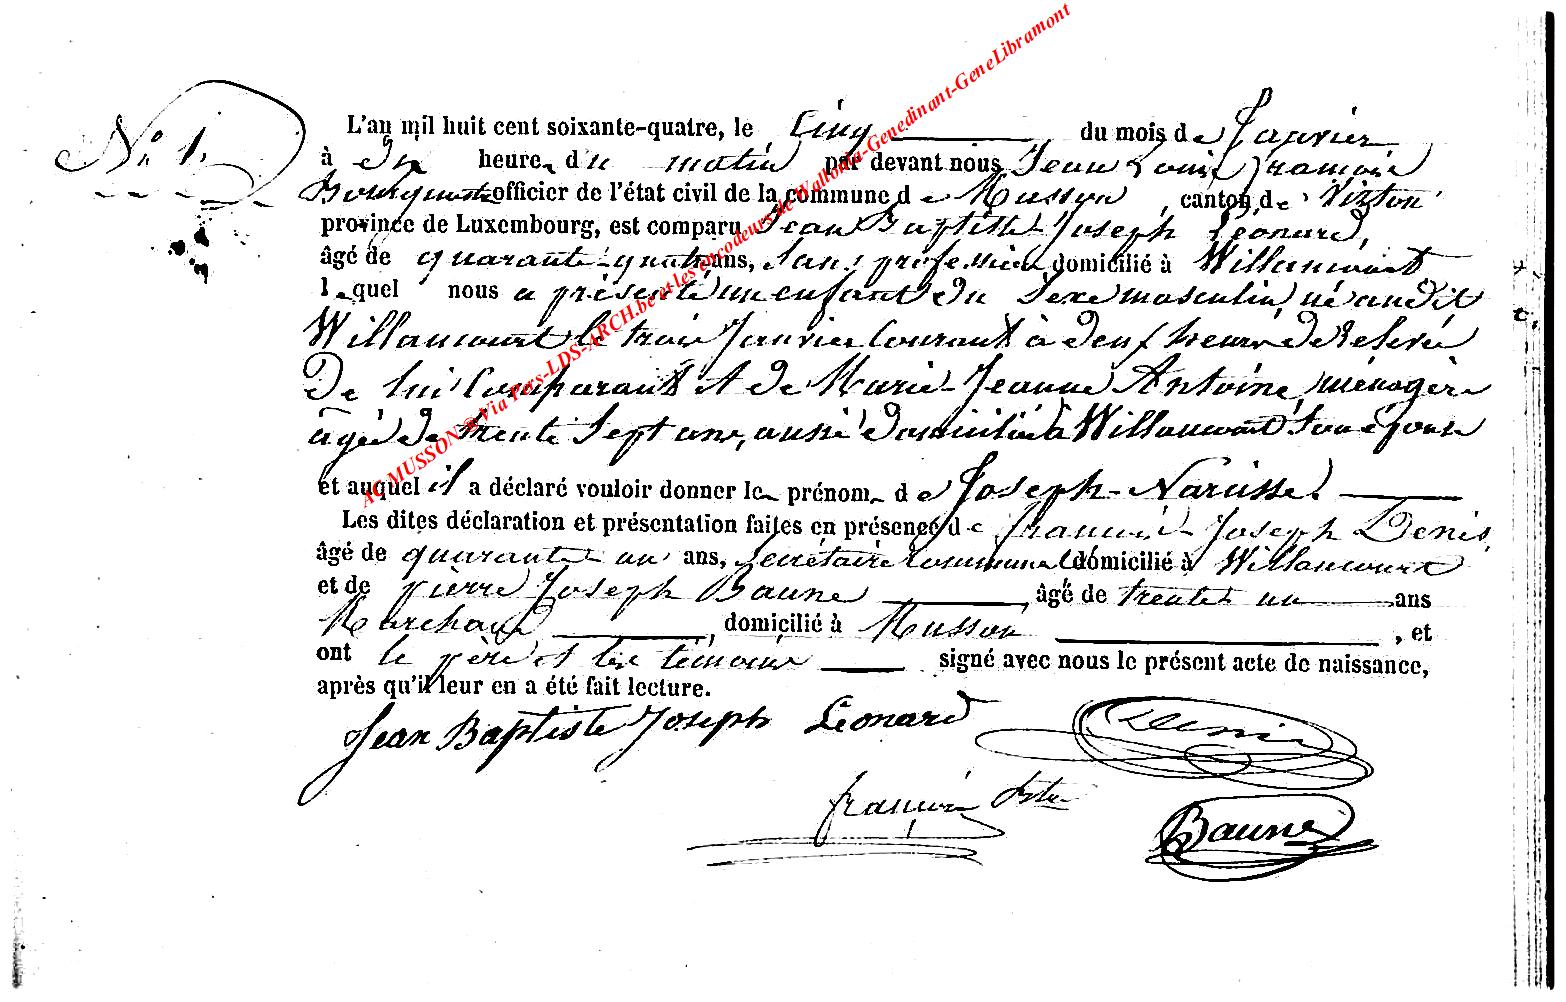 AC MUSSON @ Via Pers-LDS-ARCH.be et les encodeurs de Wallonia-Genedinant-GeneLibramont
N° 1.
L'an mil huit cent soixante-quatre, le Cinq du mois de Janvier
à dix heure du matin par devant nous Jean Louis François
officier de l'état civil de la commune de Musson, canton de Virton
province de Luxembourg, est comparu Jean Baptiste Joseph Léonard,
âgé de quarante-quatre ans, Sans profession domicilié à Willancourt
lequel nous a présenté un enfant du Sexe masculin né audit
Willancourt le trois Janvier Courant à deux heures de Relevée
De lui Comparant et de Marie-Jeanne Antoine, ménagère
âgée de trente Sept ans, aussi domiciliée à Willancourt Son épouse
et auquel il a déclaré vouloir donner le prénom de Joseph-Narcisse.
Les dites déclaration et présentation faites en présence de François-Joseph Denis,
âgé de quarante un ans, Secrétaire Communal domicilié à Willancourt
et de pierre Joseph Baune âgé de trente un ans
Marchand, domicilié à Musson, et
ont le père et les témoins signé avec nous le présent acte de naissance,
après qu'il leur en a été fait lecture.
Jean Baptiste Joseph Léonard Denis
françois
Baune